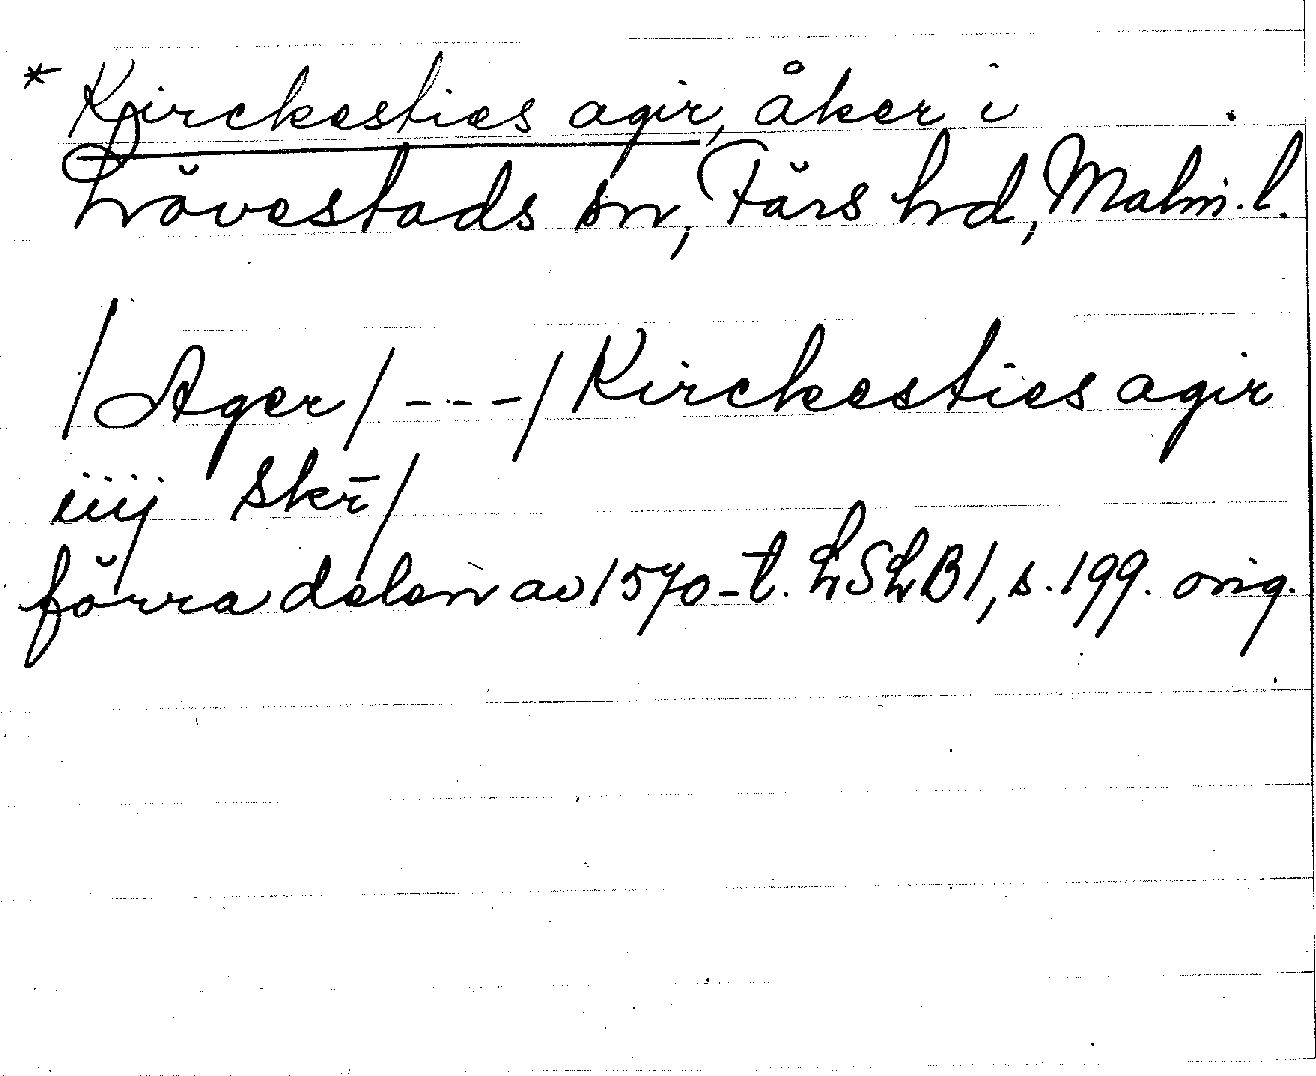 * Kirckesties agir, åker i
Lövestads sn, Färs hd, Malm. l.
/Ager/ --- / Kirckesties agir
iiij skr̄/
förra delen av 1570-t. LSLB1, s. 199. orig.